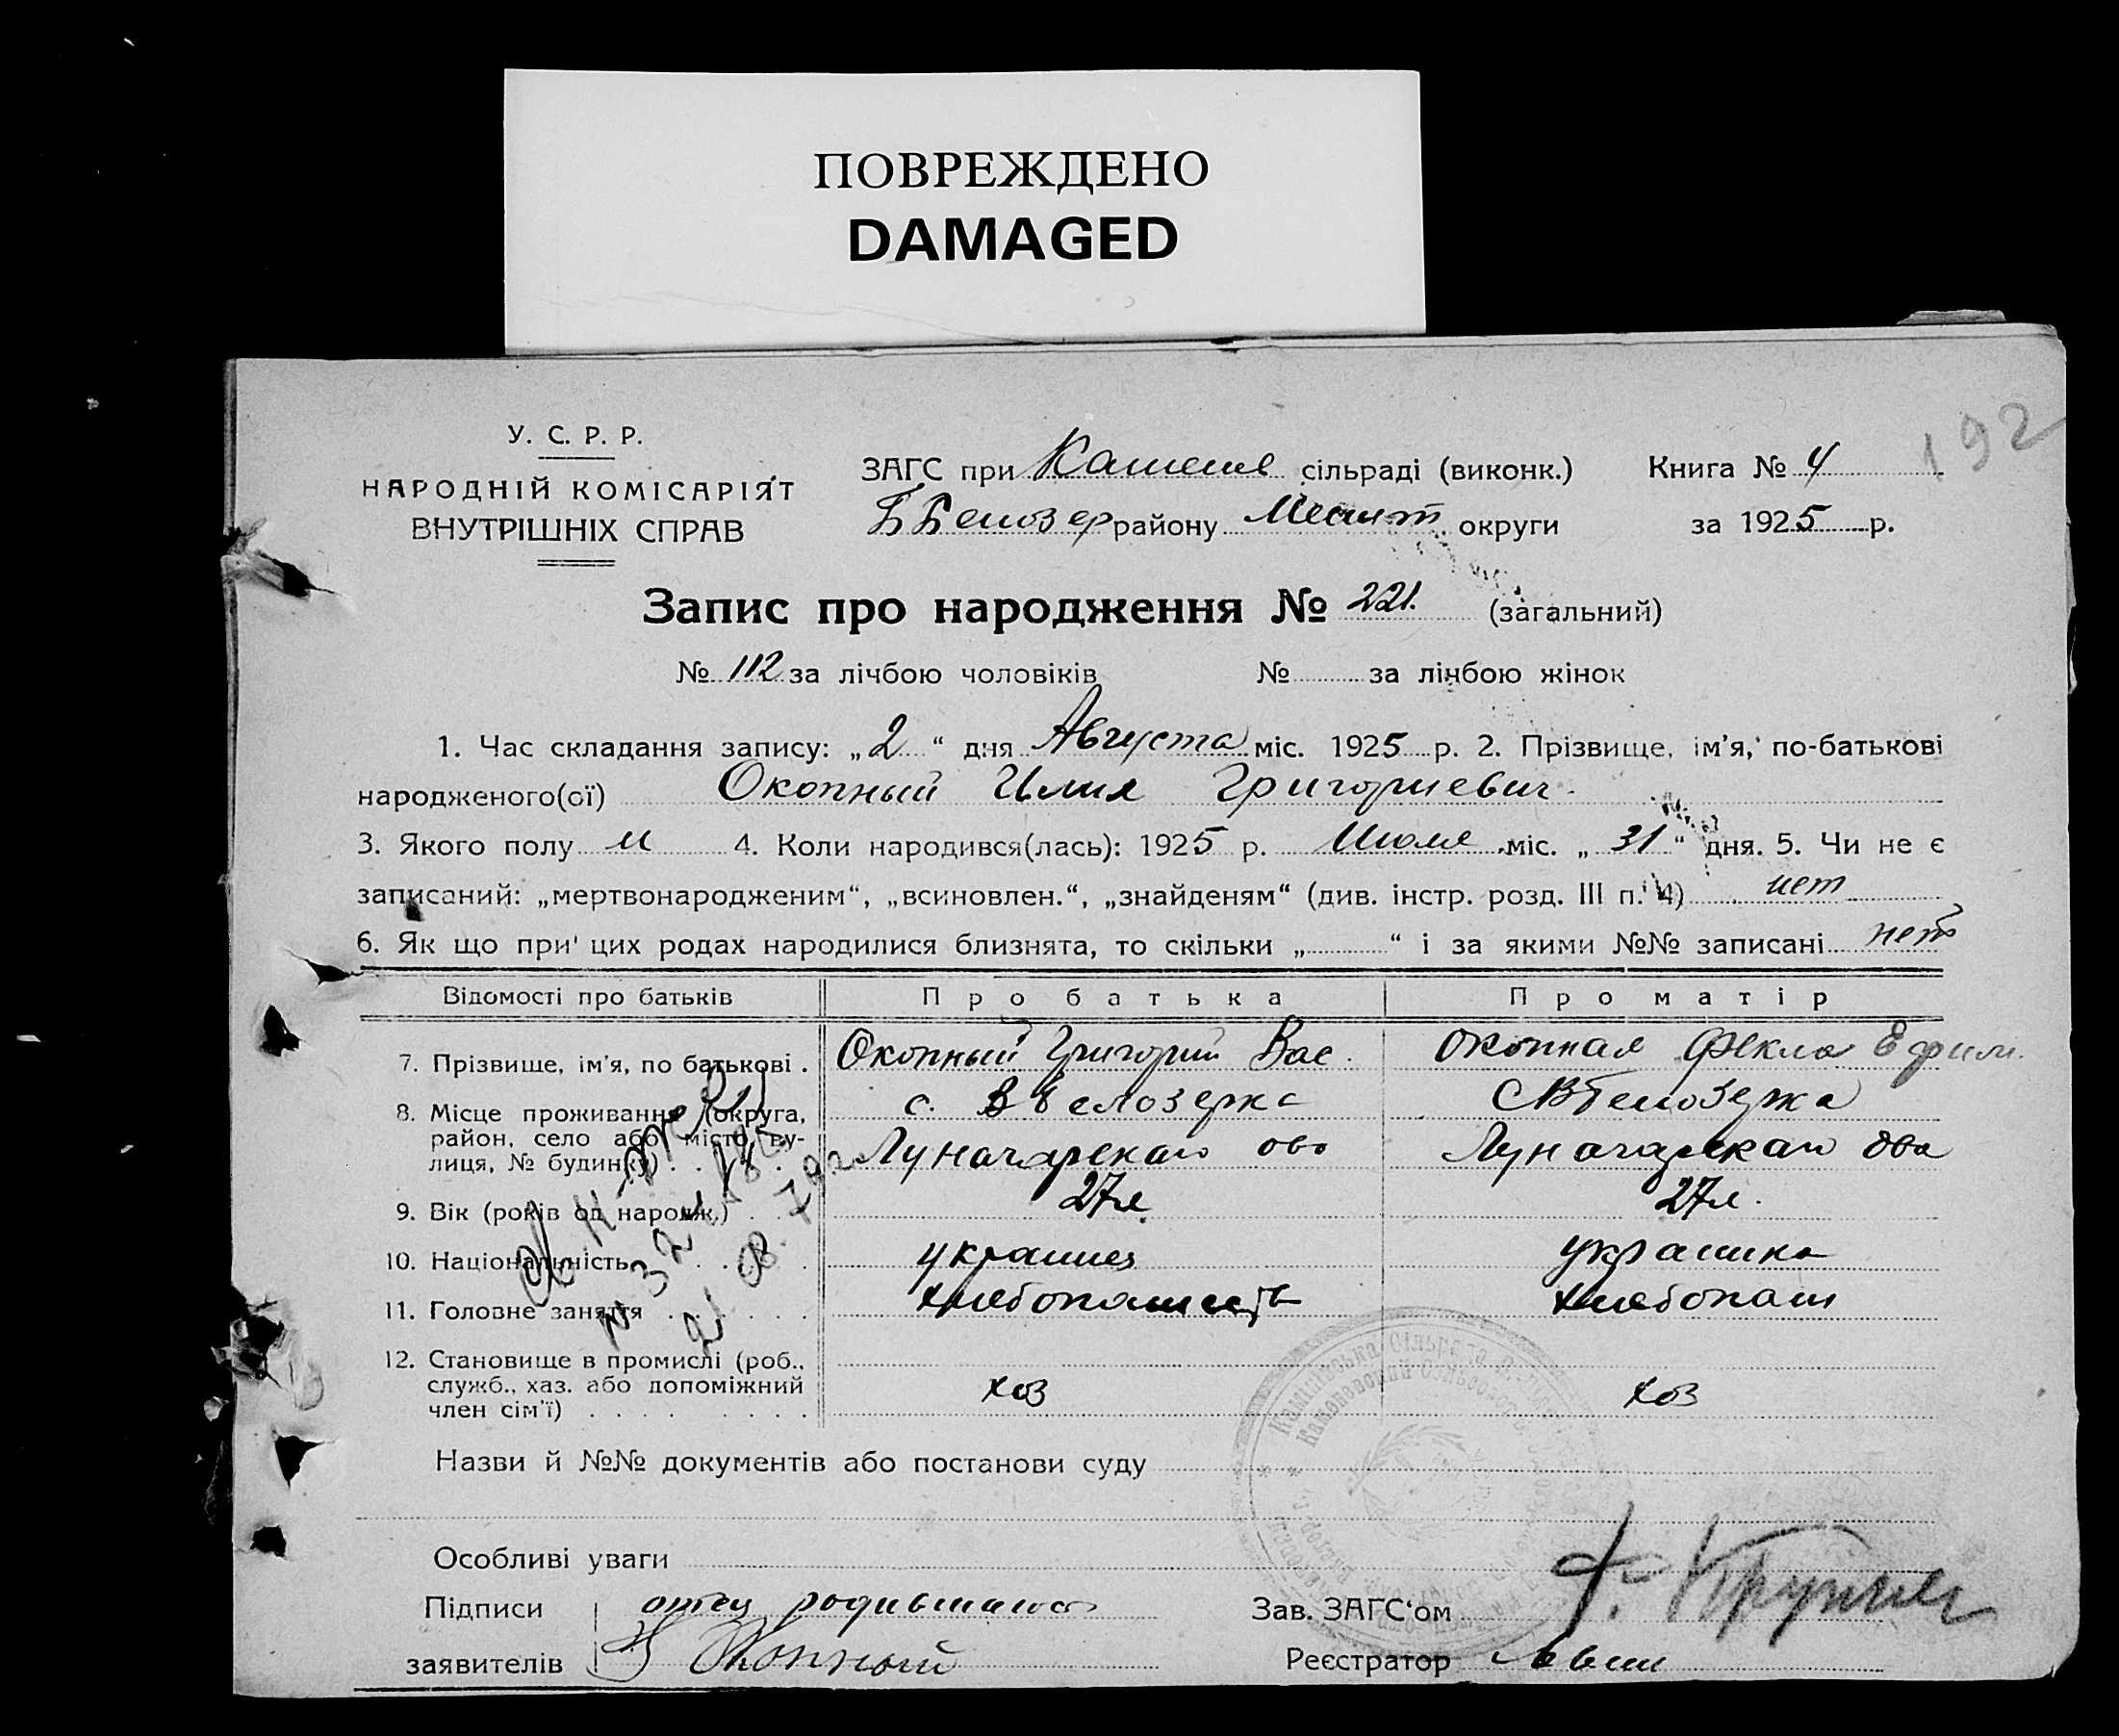 ПОВРЕЖДЕНО
DAMAGED
192
У. С. Р. Р.
НАРОДНІЙ КОМІСАРІЯТ
ВНУТРІШНІХ СПРАВ
ЗАГС при Каменев сільраді (виконк.) Книга № 4
району Мелит округи за 1925 р.
Запис про народження № 221. (загальний)
№ 112 за лічбою чоловіків № за лічбою жінок
1. Час складання запису: „2“ дня Августа міс. 1925 р. 2. Прізвище, ім'я, по-батькові
народженого(ої) Окопный Илия Григориевич
3. Якого полу м 4. Коли народився(лась): 1925 р. Июля міс. „31“ дня. 5. Чи не є
записаний: „мертвонародженим“, „всиновлен.“, „знайденям“ (див. інстр. розд. III п. 4) нет
6. Як що при цих родах народилися близнята, то скільки „ “ і за якими №№ записані нет
Відомості про батьків Про батька Про матір
7. Прізвище, ім'я, по батькові . Окопный Григорий Вас. Окопная Фекла Ефим.
8. Місце проживання (округа, с. В Белозерка с В Белозерка
район, село або місто, ву-
лиця, № будинку) . . . Луначарскаго Луначарскаго
9. Вік (років од народж.) . . . 27л. 27л.
10. Національність . . . украинец украинка
11. Головне заняття . . . хлебопашец хлебопаш
12. Становище в промислі (роб.,
служб., хаз. або допоміжний хоз хоз
член сім'ї) . . . .
Назви й №№ документів або постанови суду
Особливі уваги
Підписи отец родившагося Зав. ЗАГС'ом
заявителів Окопный Реєстратор